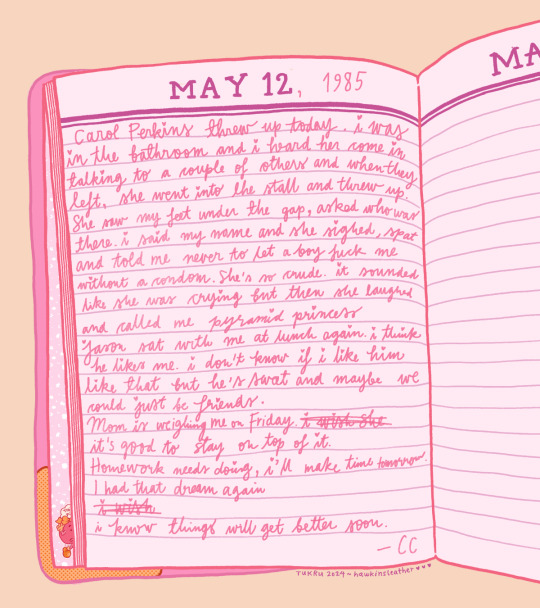 MAY 12, 1985
Carol Perkins threw up today. i was
in the bathroom and i heard her come in
talking to a couple of others and when they
left, she went into the stall and threw up.
She saw my feet under the gap, asked who was
there. i said my name and she sighed, spat
and told me never to let a boy fuck me
without a condom. She's so crude. it sounded
like she was crying but then she laughed
and called me pyramid princess
Jason sat with me at lunch again. i think
he likes me. i don't know if i like him
like that but he's sweat and maybe we
could just be friends.
Mom is weighing me on Friday. i wish she
it's good to stay on top of it.
Homework needs doing, i'll make time tomorrow.
I had that dream again
i wish
i know things will get better soon.
— CC
MA
TUKRU 2024 - hawkinsleather ♥♥♥